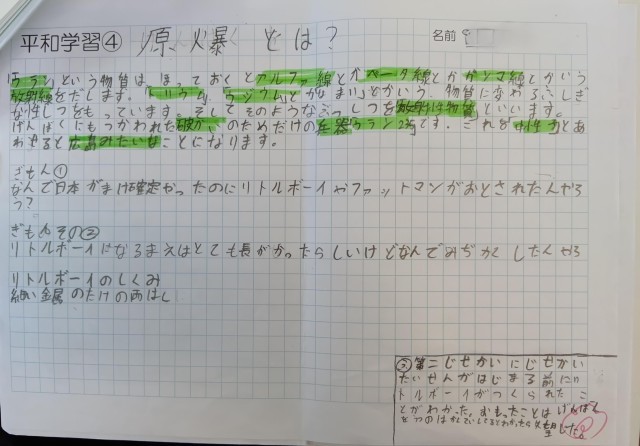 平和学習④ 原爆とは? 名前
ウランという物質は、ほっておくとアルファ線とかベータ線とかガンマ線とかいう
放射線をだします。トリウム ラジウムとか
な性しつをもっています。そしてそのようなぶっしつを放射性物質といいます。
げんばくにもつかわれた のためだけの兵器ウラン です。これを とあ
わせると広島みたいなことになります。
ぎもん①
なんで日本がまけ確定かったのにリトルボーイやファットマンがおとされたんやろ
う?
ぎもんその②
リトルボーイになるまえはとても長がかったらしいけどなんでみぢかくしたんやろ
リトルボーイのしくみ
細い金属のたけの両はし
第二じせかいにじせかい
たいせんがはじまる前にリ
トルボーイがつくられたこ
とがわかった。おもったことはげんばく
をつのは